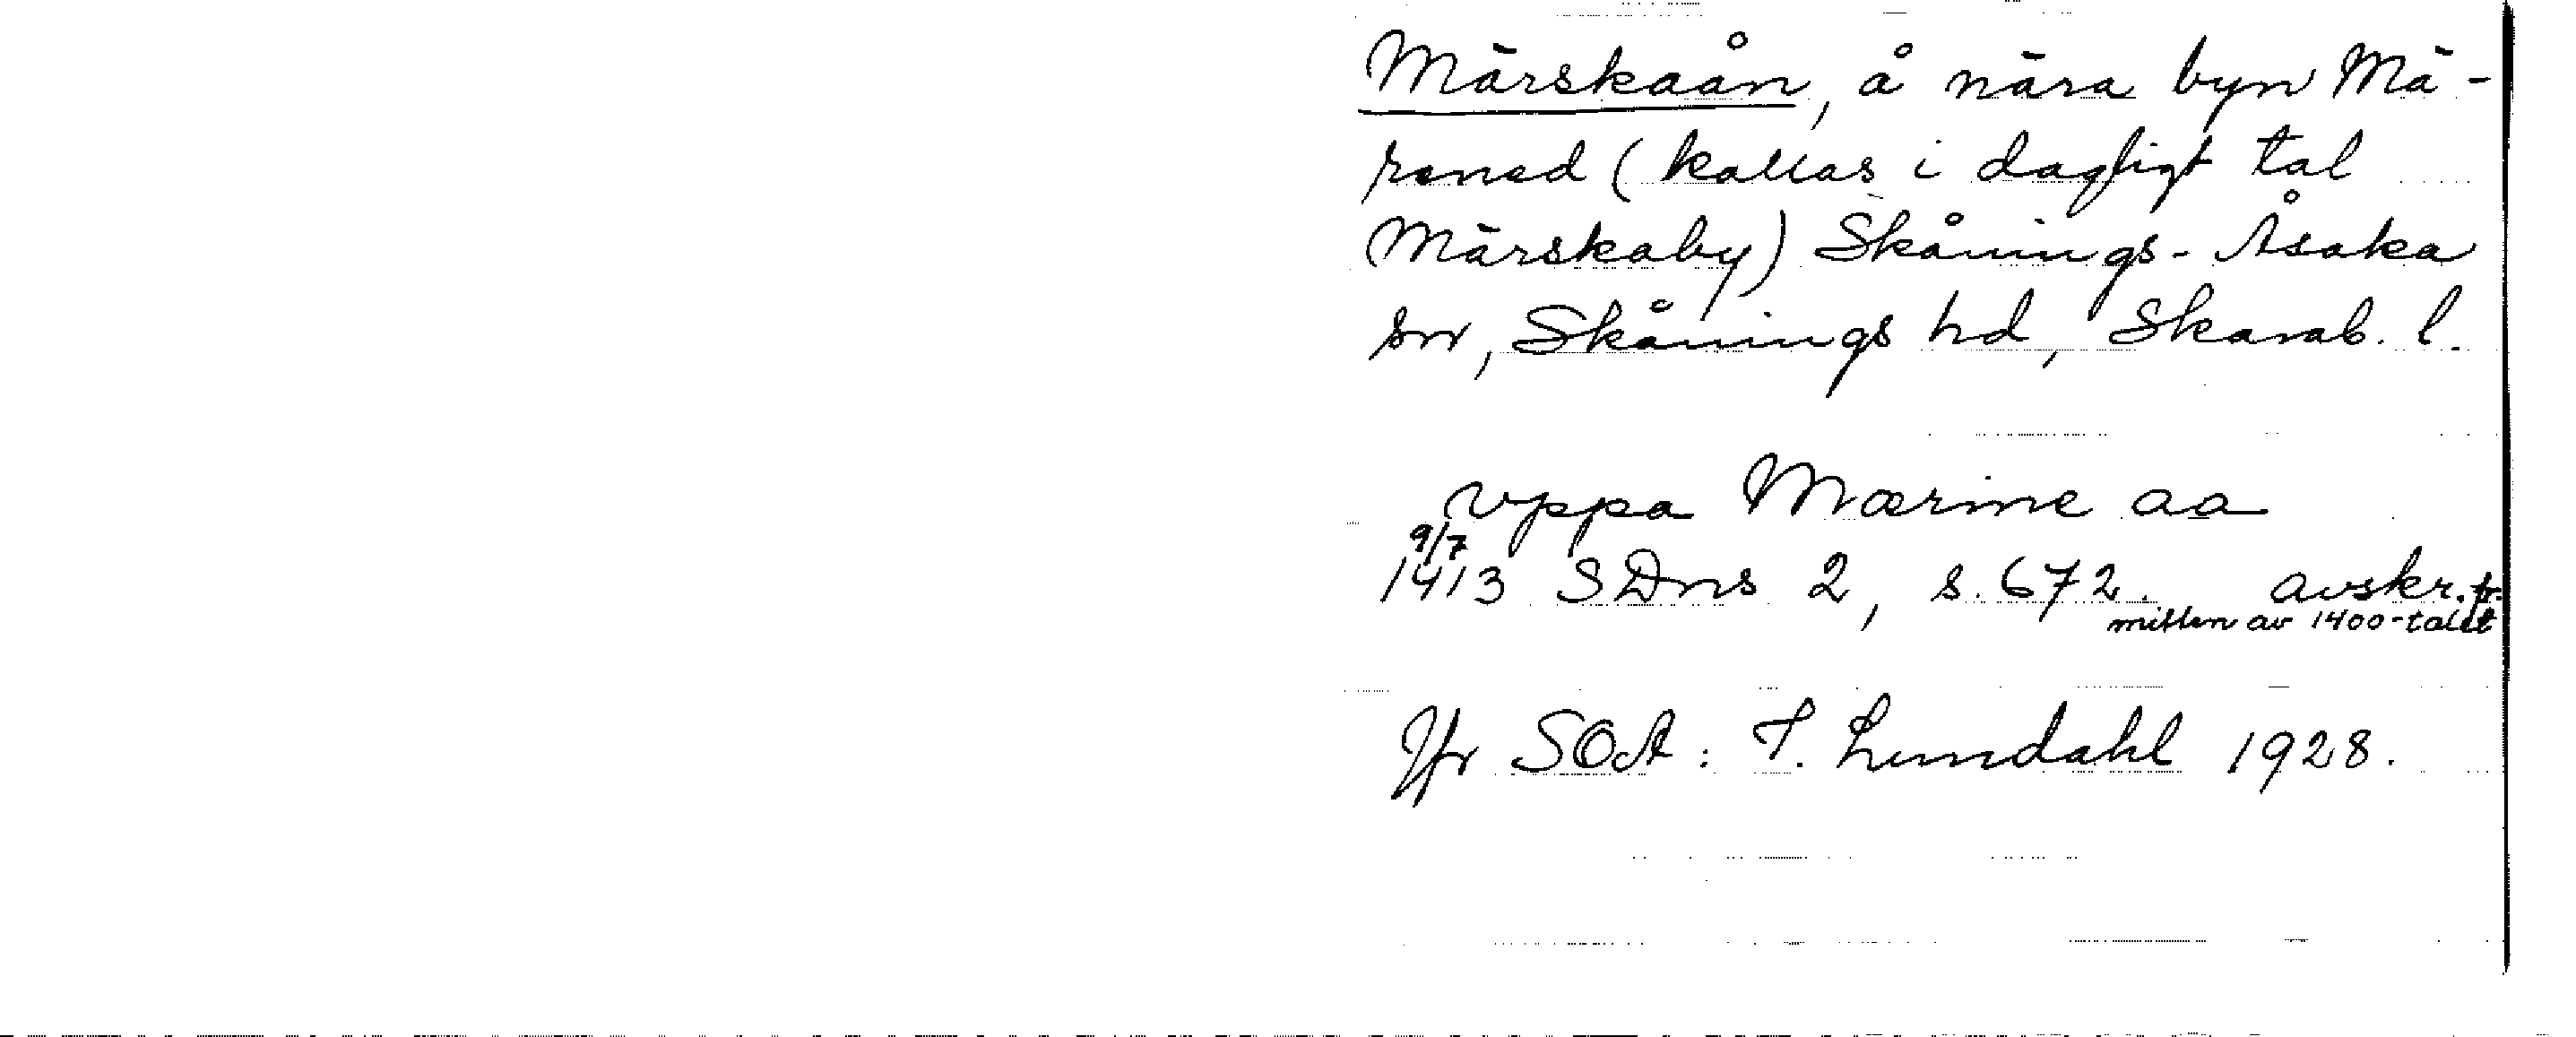 Märskaån, å nära byn Mä-
rened (kallas i dagligt tal
Märskaby) Skånings-Åsaka
sn, Skånings hd, Skarab. l.
vppa Mærine aa
9/7
1413 SDns 2, s. 672. avskr. fr.
mitten av 1400-talet
Jfr SOA: I. Lundahl 1928.